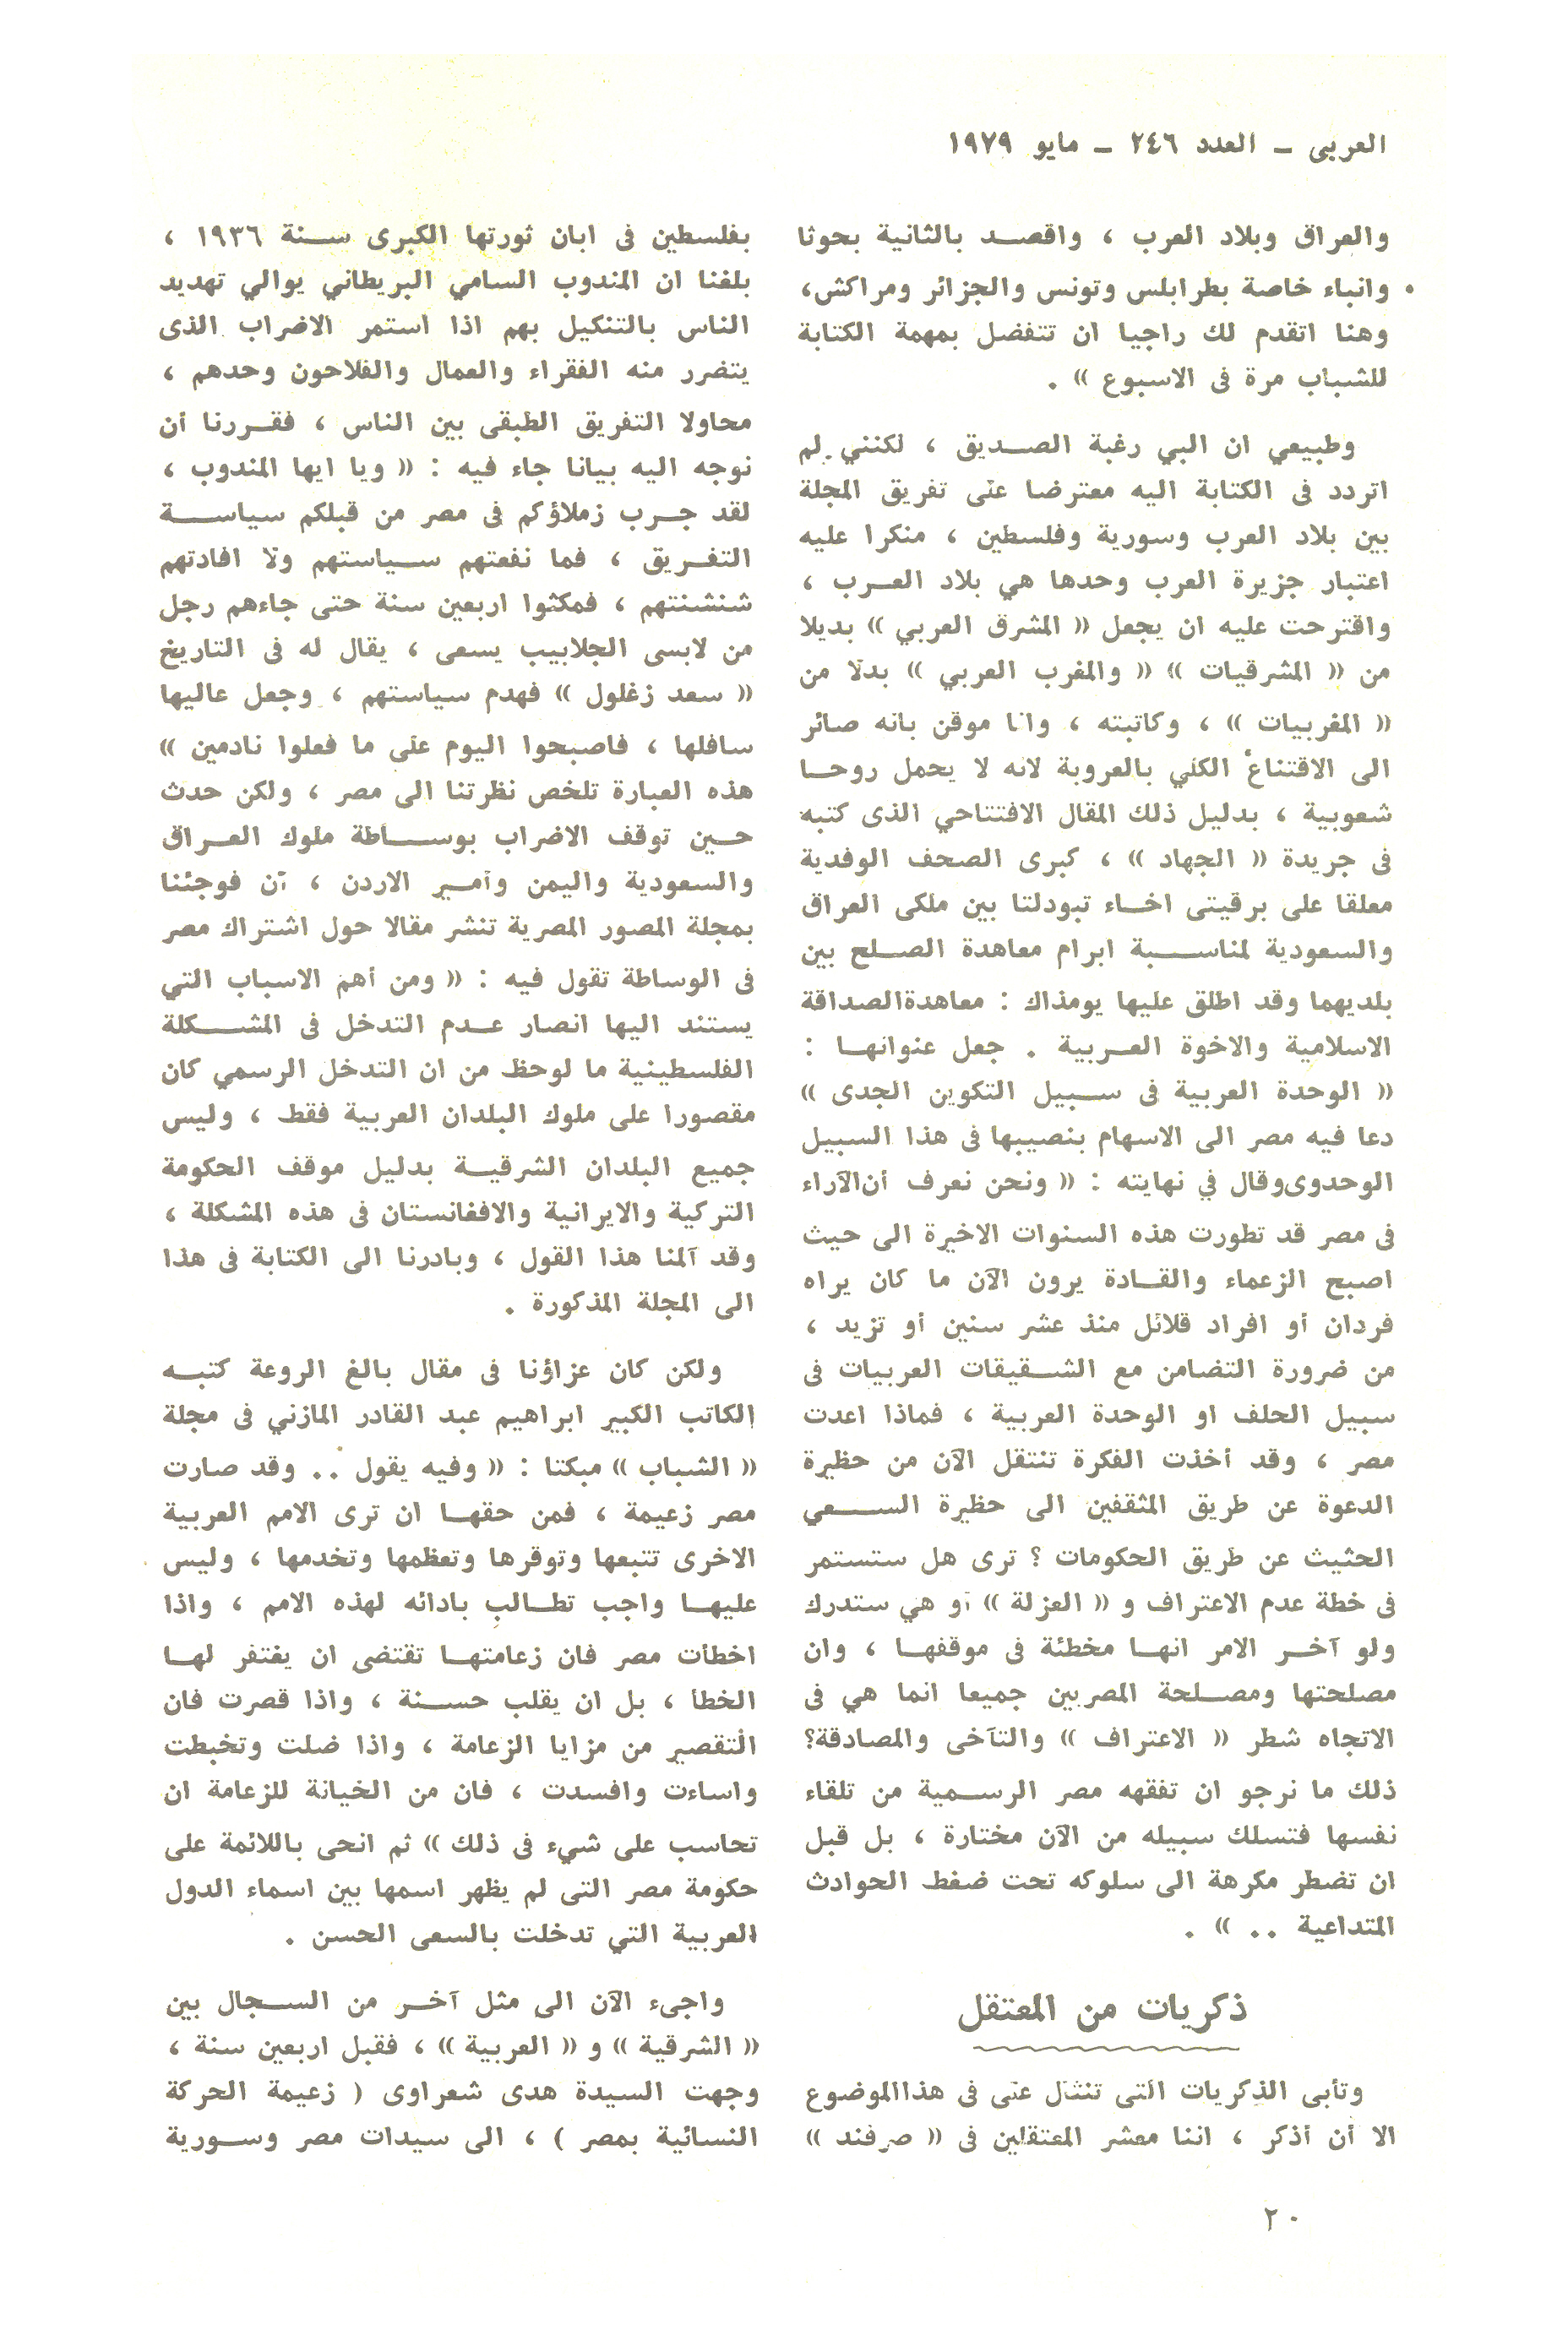 العربى ــ العدد ٢٤٦ ــ مايو ١٩٧٩
والعراق وبلاد العرب ، واقصد بالثانية بحوثا
وانباء خاصة بطرابلس وتونس والجزائر ومراكش،
وهنا اتقدم لك راجيا ان تتفضل بمهمة الكتابة
للشباب مرة فى الاسبوع » .
وطبيعي ان البي رغبة الصديق ، لكنني لم
اتردد فى الكتابة اليه معترضا على تفريق المجلة
بين بلاد العرب وسورية وفلسطين ، منكرا عليه
اعتبار جزيرة العرب وحدها هي بلاد العرب ،
واقترحت عليه ان يجعل « المشرق العربي » بديلا
من « المشرقيات » « والمغرب العربي » بدلا من
« المغربيات » ، وكاتبته ، وانا موقن بانه صائر
الى الاقتناع الكلي بالعروبة لانه لا يحمل روحا
شعوبية ، بدليل ذلك المقال الافتتاحي الذى كتبه
فى جريدة « الجهاد » ، كبرى الصحف الوفدية
معلقا على برقيتى اخاء تبودلتا بين ملكى العراق
والسعودية لمناسبة ابرام معاهدة الصلح بين
بلديهما وقد اطلق عليها يومذاك : معاهدةالصداقة
الاسلامية والاخوة العربية . جعل عنوانها :
« الوحدة العربية فى سبيل التكوين الجدى »
دعا فيه مصر الى الاسهام بنصيبها فى هذا السبيل
الوحدوىوقال في نهايته : « ونحن نعرف أن‌الآراء
فى مصر قد تطورت هذه السنوات الاخيرة الى حيث
اصبح الزعماء والقادة يرون الآن ما كان يراه
فردان أو افراد قلائل منذ عشر سنين أو تزيد ،
من ضرورة التضامن مع الشقيقات العربيات فى
سبيل الحلف او الوحدة العربية ، فماذا اعدت
مصر ، وقد أخذت الفكرة تنتقل الآن من حظيرة
الدعوة عن طريق المثقفين الى حظيرة السعي
الحثيث عن طريق الحكومات ؟ ترى هل ستستمر
فى خطة عدم الاعتراف و « العزلة » أو هي ستدرك
ولو آخر الامر انها مخطئة فى موقفها ، وان
مصلحتها ومصلحة المصريين جميعا انما هي فى
الاتجاه شطر « الاعتراف » والتآخى والمصادقة؟
ذلك ما نرجو ان تفقهه مصر الرسمية من تلقاء
نفسها فتسلك سبيله من الآن مختارة ، بل قبل
ان تضطر مكرهة الى سلوكه تحت ضغط الحوادث
المتداعية .. » .
ذكريات من المعتقل
وتأبى الذكريات التى تنثال على فى هذاالموضوع
الا أن أذكر ، اننا معشر المعتقلين فى « صرفند »
بفلسطين فى ابان ثورتها الكبرى سنة ١٩٣٦ ،
بلغنا ان المندوب السامي البريطاني يوالي تهديد
الناس بالتنكيل بهم اذا استمر الاضراب الذى
يتضرر منه الفقراء والعمال والفلاحون وحدهم ،
محاولا التفريق الطبقى بين الناس ، فقررنا أن
نوجه اليه بيانا جاء فيه : « ويا ايها المندوب ،
لقد جرب زملاؤكم فى مصر من قبلكم سياسة
التفريق ، فما نفعتهم سياستهم ولا افادتهم
شنشنتهم ، فمكثوا اربعين سنة حتى جاءهم رجل
من لابسى الجلابيب يسعى ، يقال له فى التاريخ
« سعد زغلول » فهدم سياستهم ، وجعل عاليها
سافلها ، فاصبحوا اليوم على ما فعلوا نادمين »
هذه العبارة تلخص نظرتنا الى مصر ، ولكن حدث
حين توقف الاضراب بوساطة ملوك العراق
والسعودية واليمن وأمير الاردن ، أن فوجئنا
بمجلة المصور المصرية تنشر مقالا حول اشتراك مصر
فى الوساطة تقول فيه : « ومن أهم الاسباب التي
يستند اليها انصار عدم التدخل فى المشكلة
الفلسطينية ما لوحظ من ان التدخل الرسمي كان
مقصورا على ملوك البلدان العربية فقط ، وليس
جميع البلدان الشرقية بدليل موقف الحكومة
التركية والايرانية والافغانستان فى هذه المشكلة ،
وقد آلمنا هذا القول ، وبادرنا الى الكتابة فى هذا
الى المجلة المذكورة .
ولكن كان عزاؤنا فى مقال بالغ الروعة كتبه
الكاتب الكبير ابراهيم عبد القادر المازني فى مجلة
« الشباب » مبكتا : « وفيه يقول .. وقد صارت
مصر زعيمة ، فمن حقها ان ترى الامم العربية
الاخرى تتبعها وتوقرها وتعظمها وتخدمها ، وليس
عليها واجب تطالب بادائه لهذه الامم ، واذا
اخطأت مصر فان زعامتها تقتضى ان يغتفر لها
الخطأ ، بل ان يقلب حسنة ، واذا قصرت فان
التقصير من مزايا الزعامة ، واذا ضلت وتخبطت
واساءت وافسدت ، فان من الخيانة للزعامة ان
تحاسب على شيء فى ذلك » ثم انحى باللائمة على
حكومة مصر التى لم يظهر اسمها بين اسماء الدول
العربية التي تدخلت بالسعى الحسن .
واجىء الآن الى مثل آخر من السجال بين
« الشرقية » و « العربية » ، فقبل اربعين سنة ،
وجهت السيدة هدى شعراوى ( زعيمة الحركة
النسائية بمصر ) ، الى سيدات مصر وسورية
٢٠